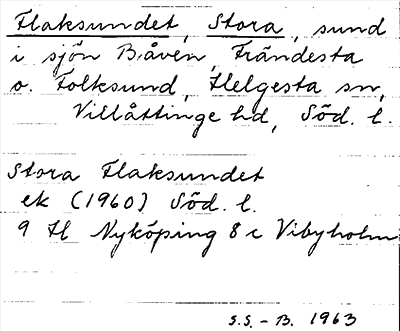 Flaksundet, Stora, sund
i sjön Båven, Frändesta
o. Folksund, Helgesta sn,
Villåttinge hd, Söd. l.
Stora Flaksundet
ek (1960) Söd. l.
9 H Nyköping 8 c Vibyholm
S.S. - B. 1963